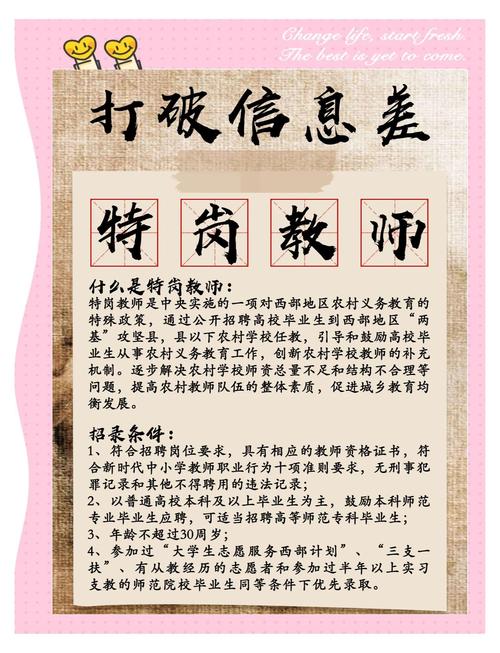 Change life, start fresh.
The best is yet to come.
打破信息差
特岗教师
什么是特岗教师：
特岗教师是中央实施的一项对西部地区农村义务教育的
特殊政策，通过公开招聘高校毕业生到西部地区“两
基”攻坚县，县以下农村学校任教，引导和鼓励高校毕
业生从事农村义务教育工作，创新农村学校教师的补充
机制。逐步解决农村学校师资总量不足和结构不合理等
问题，提高农村教师队伍的整体素质，促进城乡教育均
衡发展。
招录条件：
1、符合招聘岗位要求，具有相应的教师资格证书，符
合新时代中小学教师职业行为十项准则要求，无刑事犯
罪记录和其他不得聘用的违法记录；
2、以普通高校本科及以上毕业生为主，鼓励本科师范
专业毕业生应聘，可适当招聘高等师范专科毕业生；
3、年龄不超过30周岁；
4、参加过“大学生志愿服务西部计划”、“三支一
扶”、有从教经历的志愿者和参加过半年以上实习
支教的师范院校毕业生同等条件下优先录取。